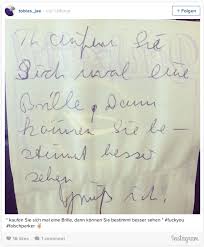 tobias_jae
kaufen Sie
Sich mal eine
Brille, Dann
können Sie be-
stimmt besser
sehen
Gruß ich.
" kaufen Sie sich mal eine Brille, dann können Sie bestimmt besser sehen " #fuckyou
#falschparker ✌
16 likes
Instagram